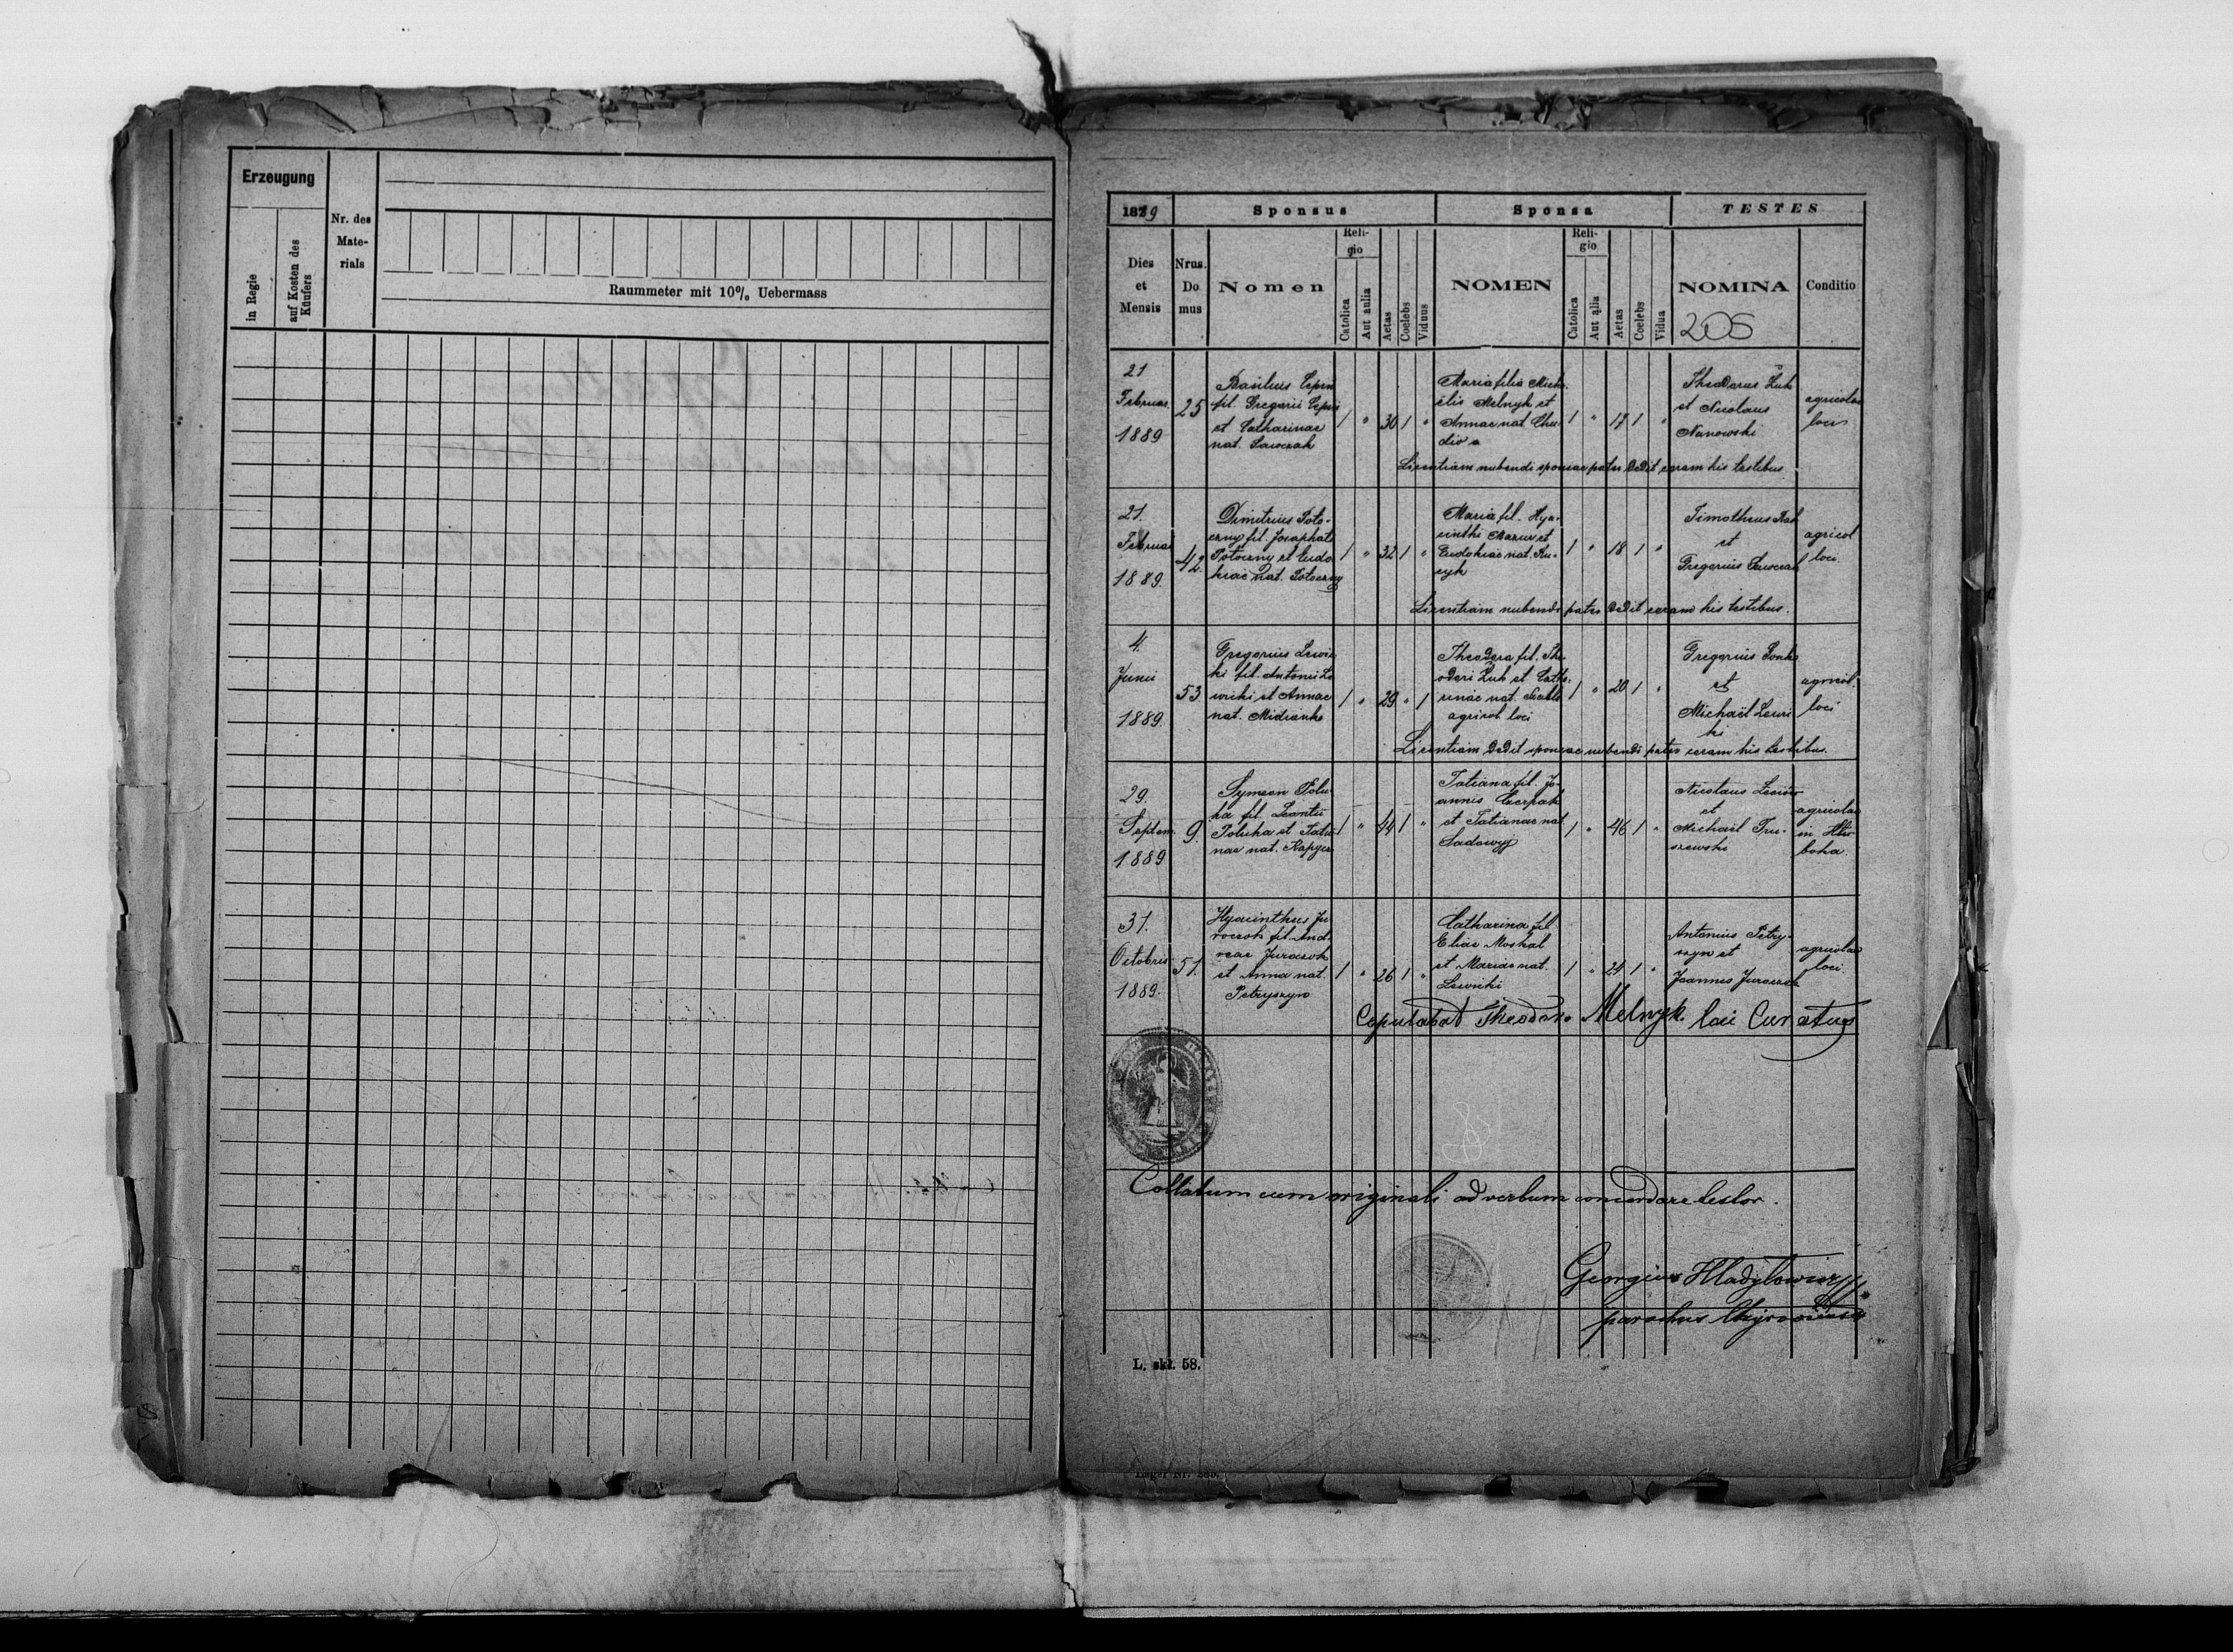 Erzeugung
in Regie
auf Kosten des Käufers
Nr. des
Mate-
rials
Raummeter mit 10% Uebermass
1889
Sponsus
Sponsa
TESTES
Dies
et
Mensis
Nrus.
Do
mus
Nomen
Reli-
gio
Catolica
Aut aulia
Aetas
Coelebs
Viduus
NOMEN
Reli-
gio
Catolica
Aut alia
Aetas
Coelebs
Vidua
NOMINA
205
Conditio
21
Februar.
1889
25
Basilius
fil. Gregorii
et Catharinae
nat. Sawczak
1 " 30 1 "
Maria filia Micha
elis Melnyk et
Annae nat. Chu
1 " 17 1 "
Theodorus Żuk
et Nicolaus
Nanowski
agricolae
loci
Licentiam nubendi sponsae pater dedit coram his testibus
21.
Februar
1889.
42.
Dimitrius Poto-
czny fil. Josaphat
Potoczny et Eudo
kiae nat. Potoczny
1 " 32 1 "
Maria fil. Hya-
cinthi Mazur et
Eudokiae nat. Ku-
cyk
1 " 18 1 "
Timotheus
et
Gregorius Sawczak
agricol
loci.
Licentiam nubendi pater dedit coram his testibus.
4.
Junii
1889.
53
Gregorius Lewic
ki fil. Antonii Le
wicki et Annae
nat. Midianko
1 " 29 " 1
Theodora fil. The
odori Żuk et Catha
rinae nat.
agricol loci
1 " 20 1 "
Gregorius
et
Michaël Lewic
ki
agricol.
loci
Licentiam dedit sponsae nubendi pater coram his testibus.
29.
Septem.
1889
9.
Symeon Polu
ha fil. Leontii
Poluha et Tatia
nae nat.
1 " 44 1 "
Tatiana fil. Jo-
annis Czerpak
et Tatianae nat
Sadowyj
1 " 46 1 "
Nicolaus
et
Michaël Tru-
szewski
agricolae
in Hlu
boka.
31.
Octobris
1889.
51.
Hyacinthus Ju
roczok fil. And.
reae Juroczok
et Anna nat.
Petryszyn
1 " 26 1 "
Catharina fil
Eliae Moskal
et Mariae nat.
Lewicki
1 " 24 1 "
Antonius Petry-
szyn et
Joannes Juroczok
agricolae
loci.
Copulabat Theodor. Melnyk. loci Curatus
Collatum cum originali ad verbum concordare testor.
Georgius Hladyłowicz
parochus Chyroviensis
L. skł. 58.